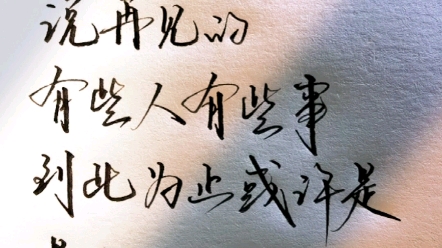 说再见的
有些人有些事
到此为止或许是